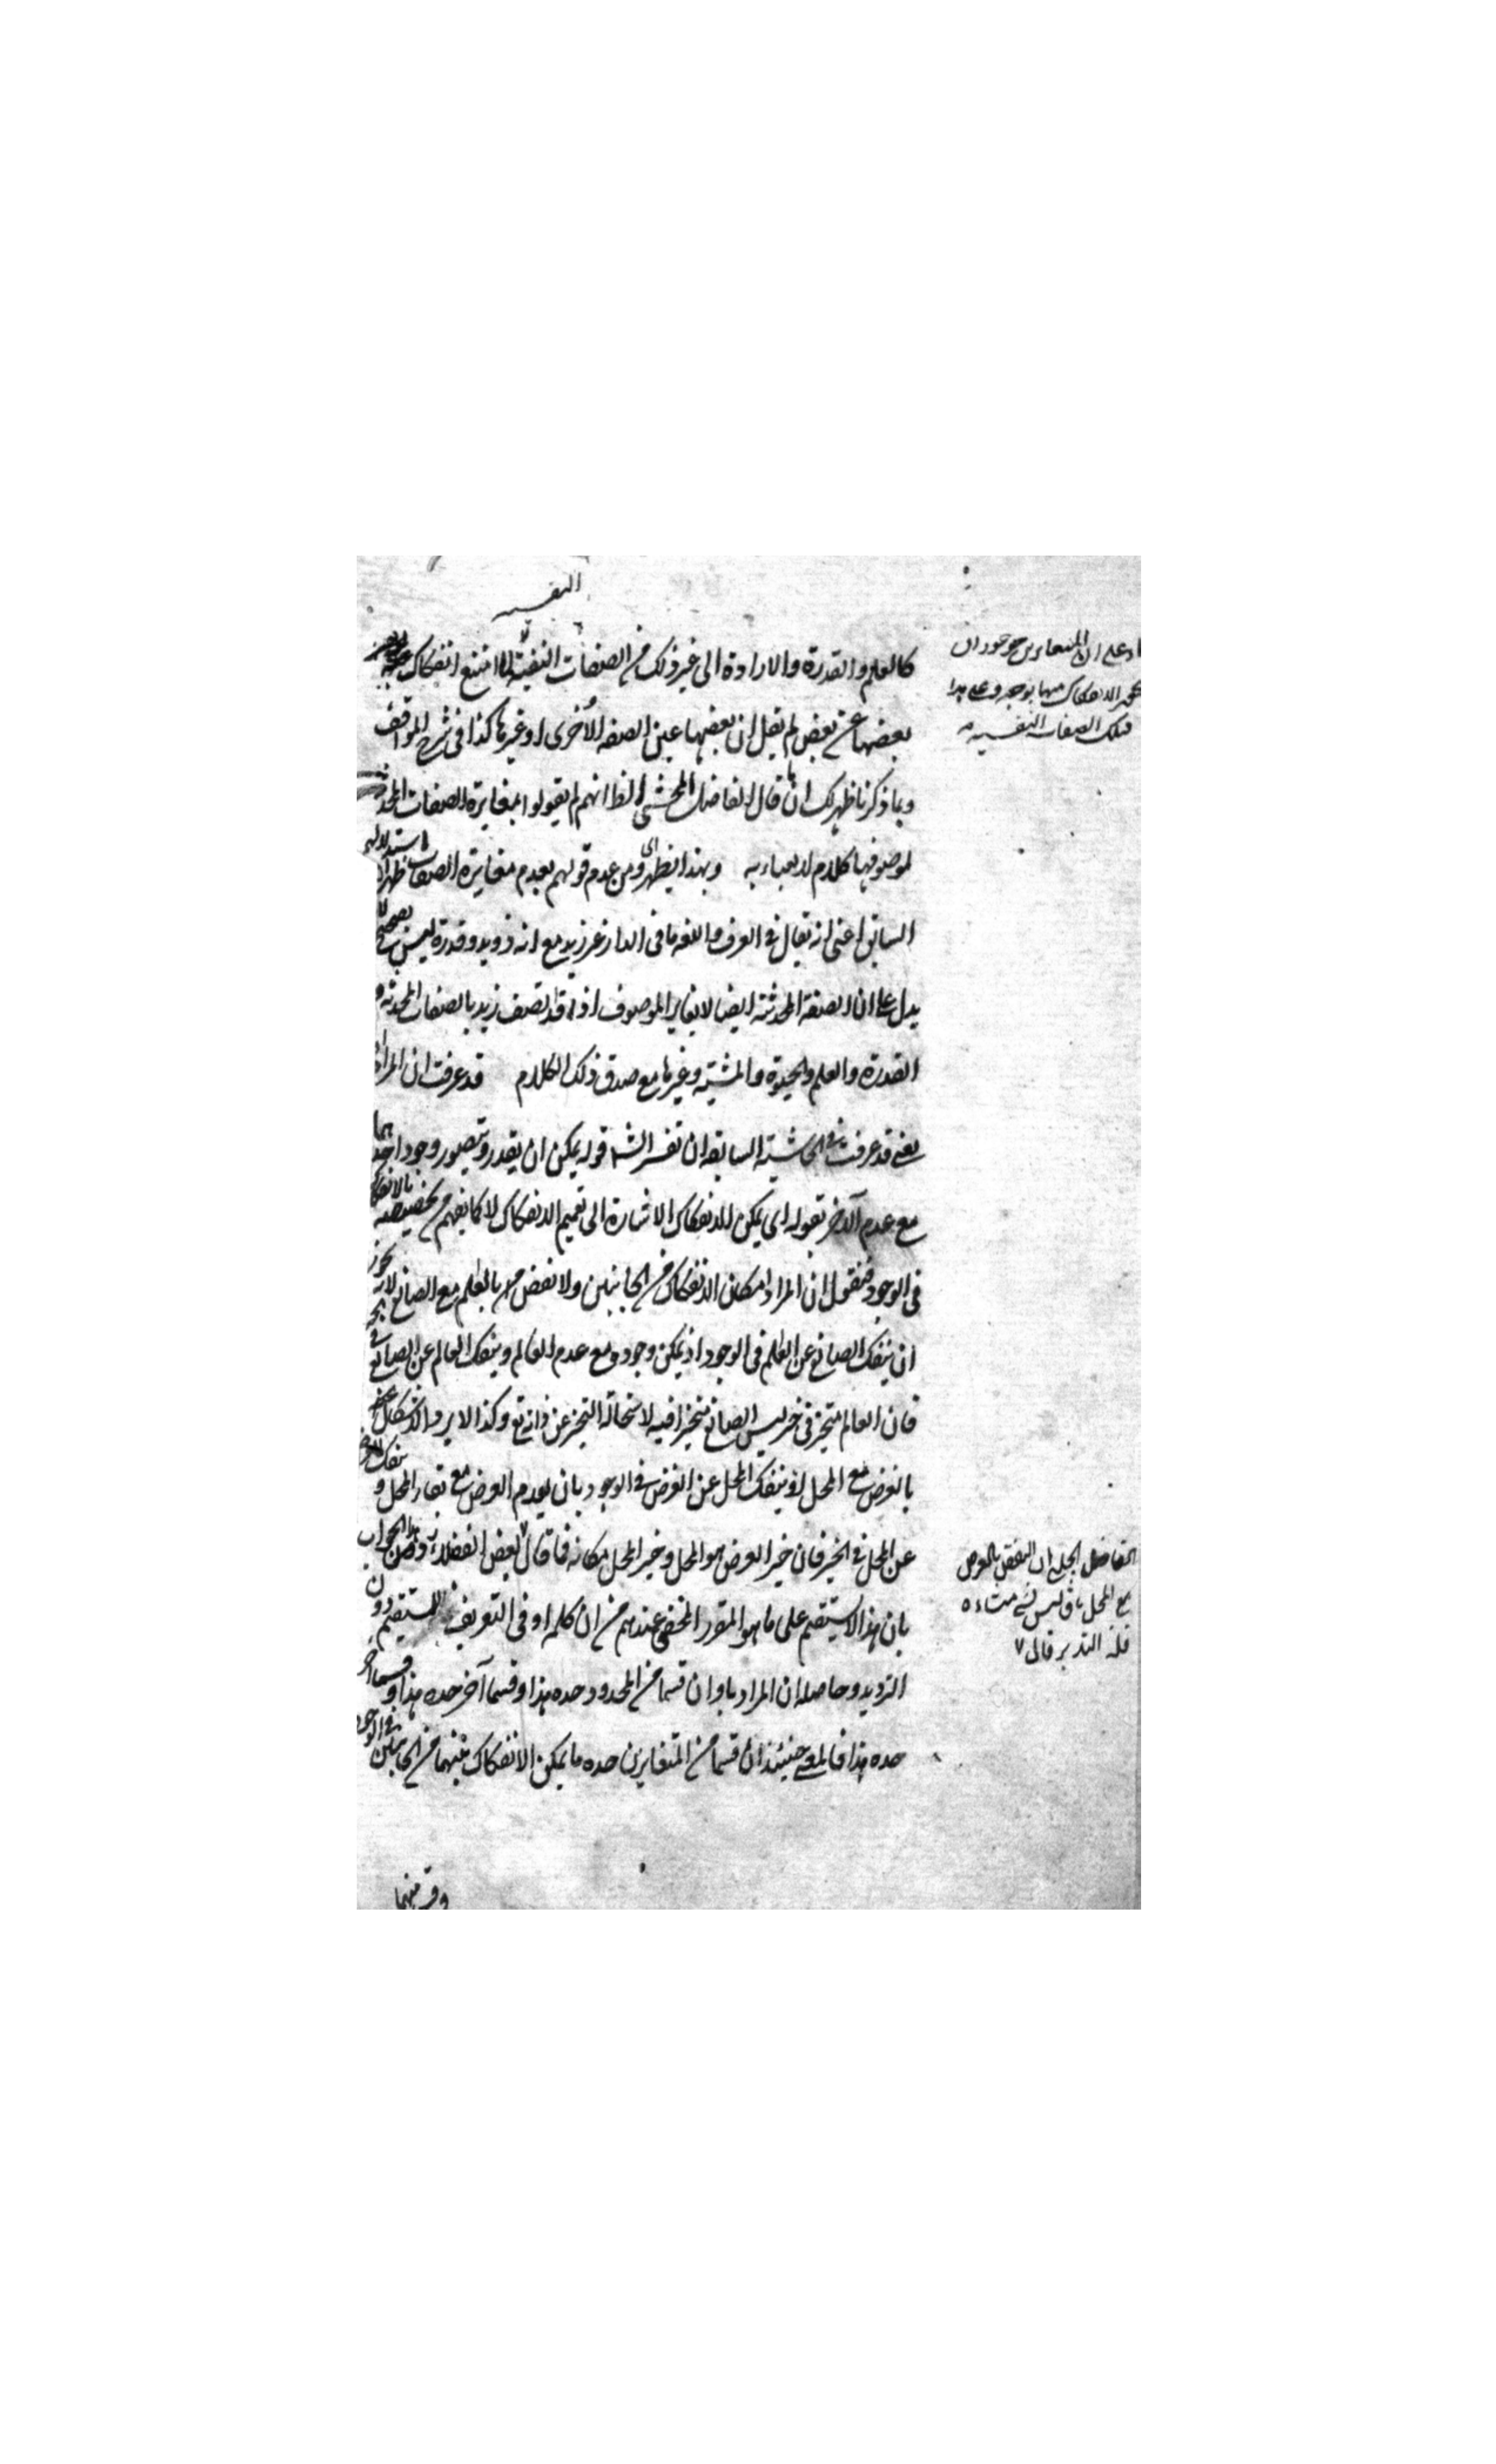 النفسية
كالعلم والقدرة والارادة الى غير ذلك من الصفات النفسية لما امتنع انفكاك
بعضها عن بعض لم يقل ان بعضها عين الصفه الأخرى او غيرها كذا فى شرح المواقف
وبما ذكرنا ظهر لك ان ما قال الفاضل المحشى الظ انهم لم يقولوا بمغايرة الصفات المحدثة
لموصوفها كلام لا يعباء به وبهذا يظهر اى ومن عدم قولهم بعدم مغايرة الصفات ظهر ان استدلالهم
السابق اعنى انه يقال فى العرف واللغه ما فى الدار غير زيد مع انه ذو يد وقدرة ليس بصحيح لا
يدل على ان الصفة المحدثة ايضا لا يغاير الموصوف اذ قد تصف زيد بالصفات المحدثه و
القدرة والعلم والحيوة والمشية وغيرها مع صدق ذلك الكلام قد عرفت ان المراد
يعنى قد عرفت فى الحاشية السابقة ان تفسير الش قوله يمكن ان يقدر ويتصور وجود احدهما
مع عدم الآخر بقوله اى يمكن الانفكاك الاشارة الى تعميم الانفكاك لا كما يفهم من تخصيصه بالانفكاك
فى الوجود فنقول ان المراد امكان الانفكاك من الجانبين ولا نقض ح بالعالم مع الصانع لانه يجوز
ان ينفك الصانع عن العالم فى الوجود اذ يمكن وجوده مع عدم العالم وينفك العالم عن الصانع فى
فان العالم متحيز فى حيز ليس الصانع متحيزا فيه لاستحالة التحيز عن ذاته تع وكذا لا يرد الاشكال
بالعرض مع المحل اذ ينفك المحل عن العرض فى الوجود بان يعدم العرض مع بقاء المحل و ينفك العرض
عن المحل فى الحيز فان حيز العرض هو المحل وحيز المحل مكانه فما قال بعض الفضلاء من ان هذا الجواب
بان هذا لا يستقيم على ما هو المقرر عندهم من ان كلمه او فى التعريف للتقسيم دون
الترديد وحاصله ان المراد باو ان قسما من المحدود حده هذا وقسما آخر حده هذا وقسما آخر
حده هذا فالمعنى حينئذ ان قسما من المتغايرين حده ما يمكن الانفكاك بينهما من الجانبين فى الوجود
ان المتغايرين موجودان
الانفكاك منهما بوجه وعلى هذا
فتلك الصفات النفسية
الفاضل الجلبى ان النقض بالعرض
مع المحل باق ليس منشاءه
قلة التدبر قال ٧